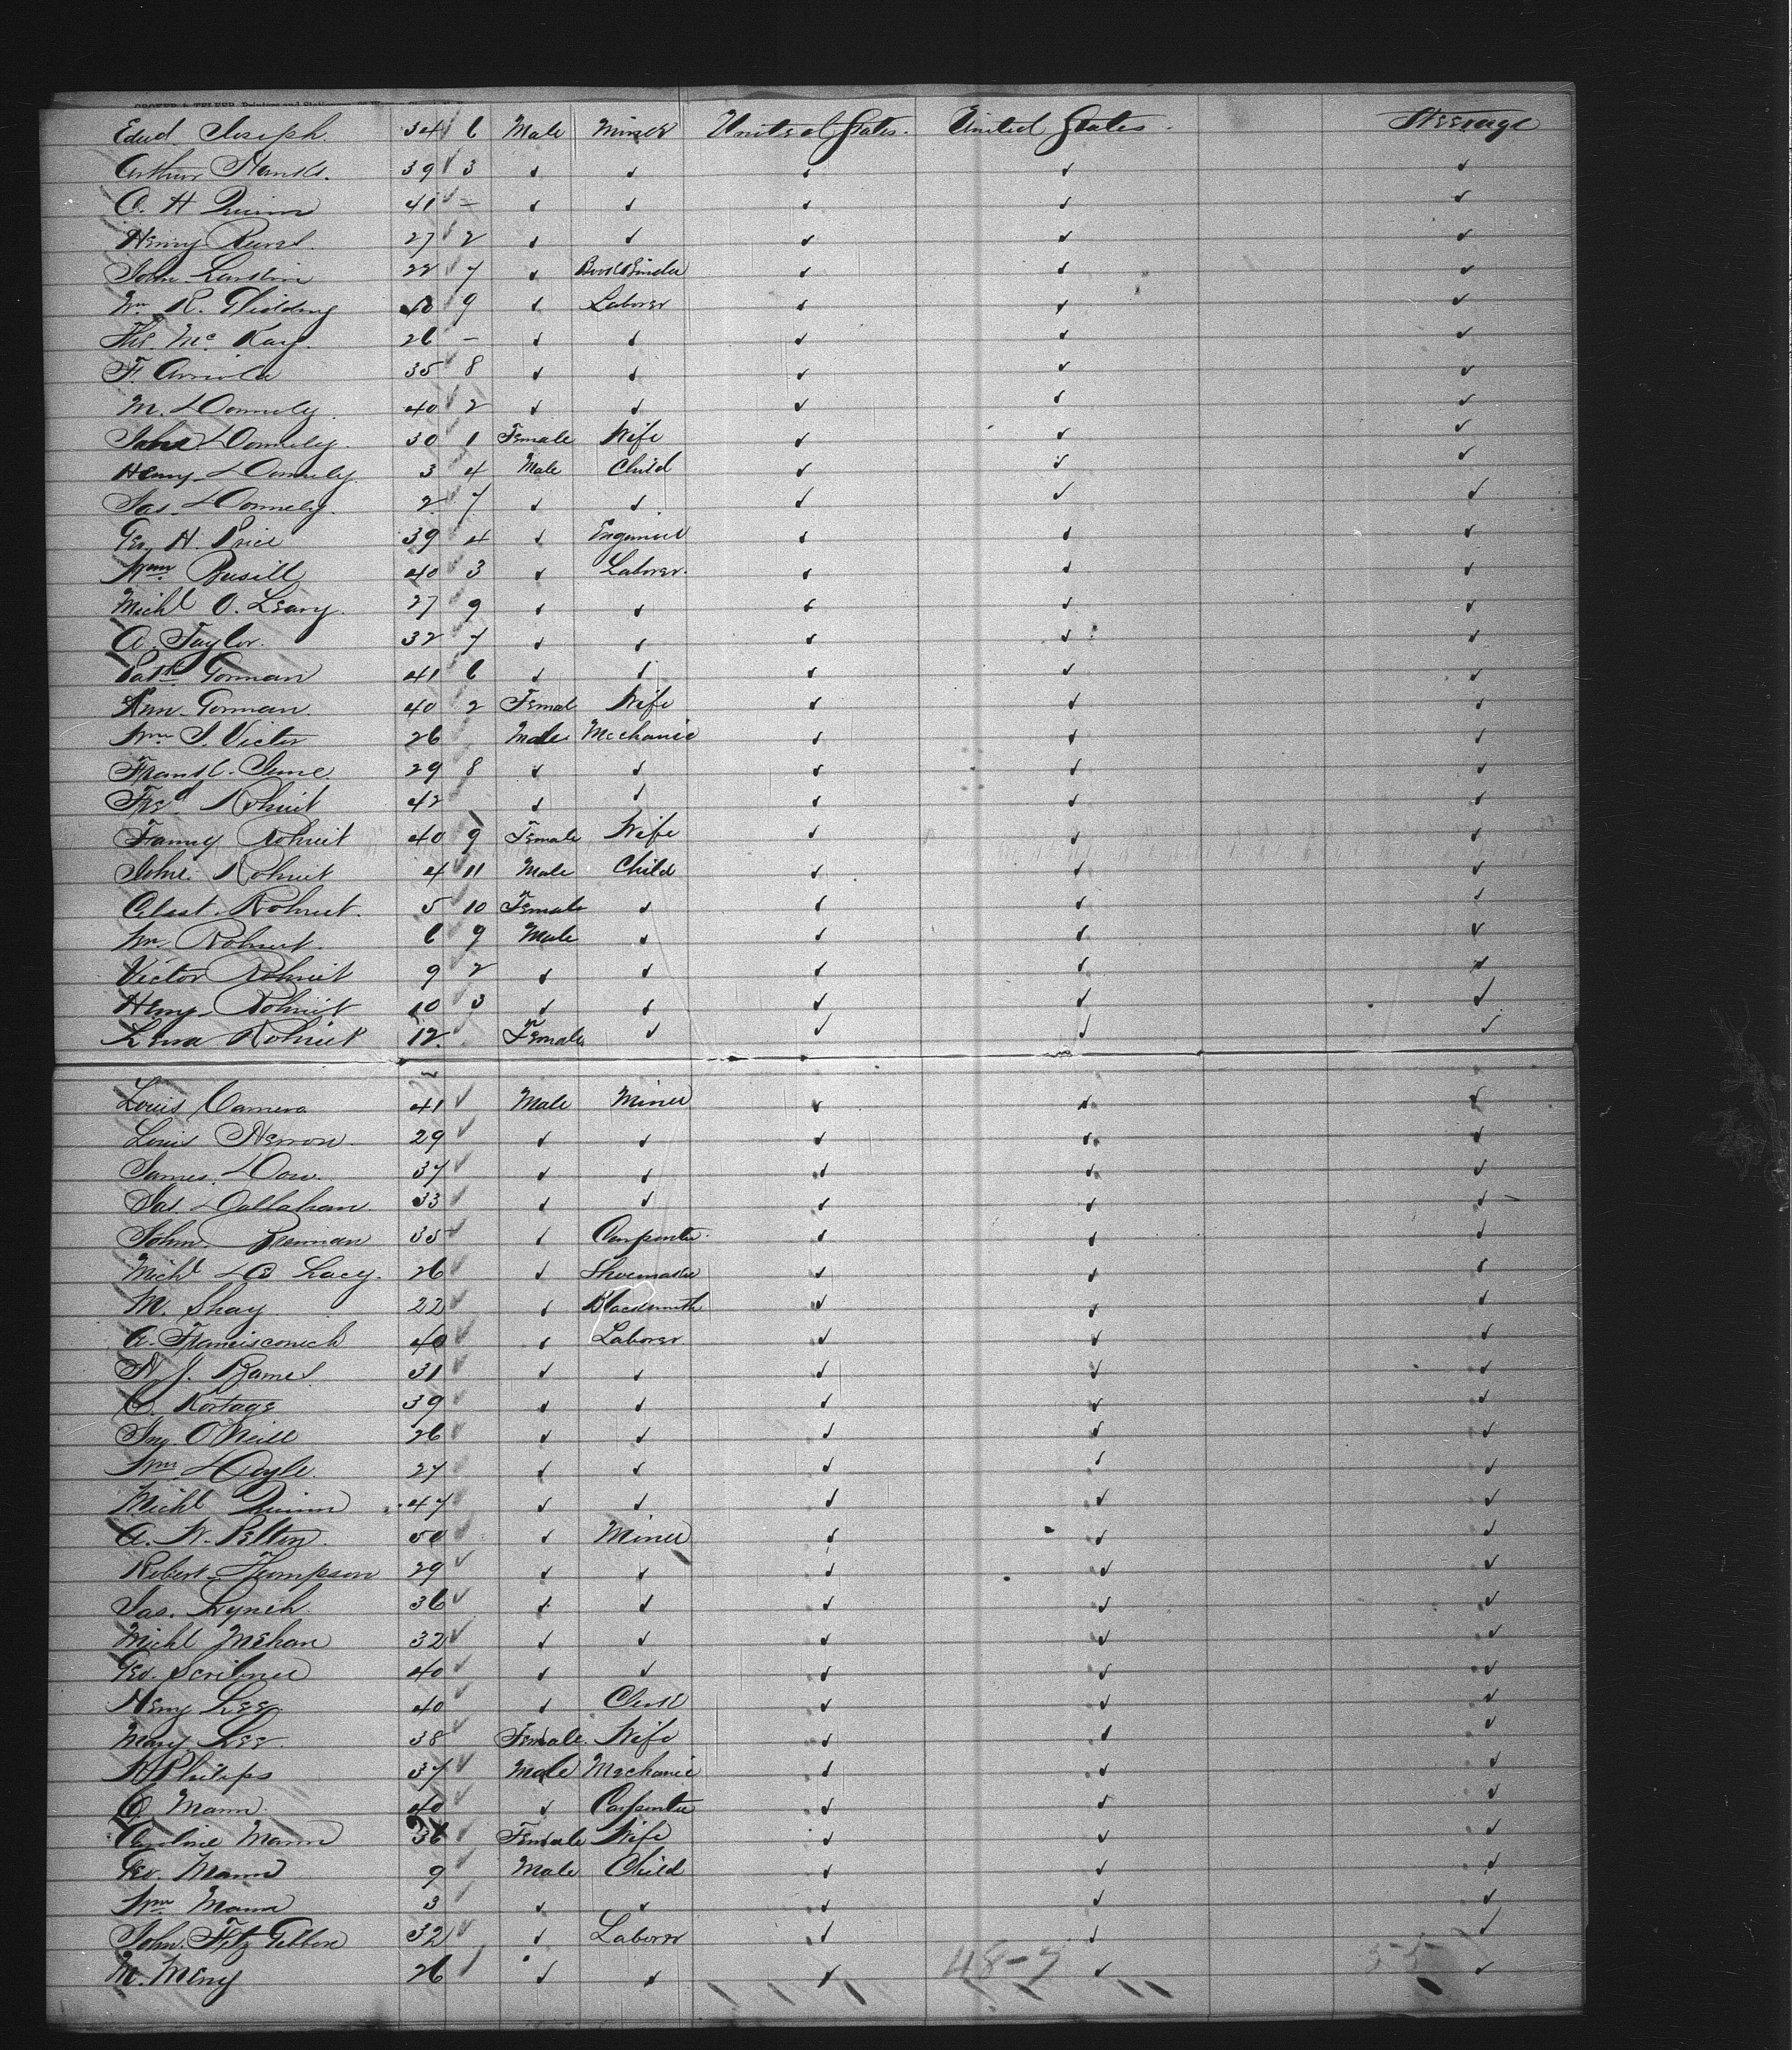 Edwd Joseph. 34 6 Male Miner United States. United States. Steerage
Arthur Hanks. 39 3 ✓ ✓ ✓ ✓ ✓
C. H Quinn 41 – ✓ ✓ ✓ ✓ ✓
Henry 27 2 ✓ ✓ ✓ ✓ ✓
John 22 7 ✓ Book Binder ✓ ✓ ✓
Wm R. 40 9 ✓ Laborer ✓ ✓ ✓
Mc Kay. 26 – ✓ ✓ ✓ ✓ ✓
F. 35 8 ✓ ✓ ✓ ✓ ✓
M. Donnely. 40 2 ✓ ✓ ✓ ✓ ✓
Donnely. 30 1 Female Wife ✓ ✓ ✓
Henry Donnely. 3 4 Male Child ✓ ✓ ✓
Jas. Donnely. 2 7 ✓ ✓ ✓ ✓ ✓
Geo H. Price 39 4 ✓ Engineer ✓ ✓ ✓
Wm Busill 40 3 ✓ Laborer. ✓ ✓ ✓
Michl O. Leary. 27 9 ✓ ✓ ✓ ✓ ✓
A. Taylor. 32 7 ✓ ✓ ✓ ✓ ✓
Patk Gorman 41 6 ✓ ✓ ✓ ✓ ✓
Ann Gorman. 40 2 Femal Wife ✓ ✓ ✓
Wm S. Victor 26 Male Mechanic ✓ ✓ ✓
29 8 ✓ ✓ ✓ ✓ ✓
Fred Rohuit 42 ✓ ✓ ✓ ✓ ✓
Fanny Rohuit 40 9 Female Wife ✓ ✓ ✓
John. Rohuit 4 11 Male Child ✓ ✓ ✓
Rohuit. 5 10 Female ✓ ✓ ✓ ✓
Wm Rohuit. 6 9 Male ✓ ✓ ✓ ✓
Victor Rohuit 9 2 ✓ ✓ ✓ ✓ ✓
Henry Rohuit 10 3 ✓ ✓ ✓ ✓ ✓
Lena Rohuit 12. Female ✓ ✓ ✓ ✓
Louis Camera 41 Male Miner ✓ ✓ ✓
Louis Herron. 29 ✓ ✓ ✓ ✓ ✓
James. Dow. 37 ✓ ✓ ✓ ✓ ✓
Jas Dallahan 33 ✓ ✓ ✓ ✓ ✓
John. Brennan 35 ✓ Carpenter. ✓ ✓ ✓
Michl D Lacy. 26 ✓ Shoemaker ✓ ✓ ✓
M. Shay 22 ✓ Blacksmith ✓ ✓ ✓
A. Francisconich 40 ✓ Laborer ✓ ✓ ✓
N. J. Barnes 31 ✓ ✓ ✓ ✓ ✓
C. Kortage 39 ✓ ✓ ✓ ✓ ✓
Jno. O'Neill 26 ✓ ✓ ✓ ✓ ✓
Wm Doyle. 27 ✓ ✓ ✓ ✓ ✓
Michl Quinn 47 ✓ ✓ ✓ ✓ ✓
A. W. Pelton. 50 ✓ Miner ✓ ✓ ✓
Robert Thompson 29 ✓ ✓ ✓ ✓ ✓
Jas. Lynch 36 ✓ ✓ ✓ ✓ ✓
Michl Mehan 32 ✓ ✓ ✓ ✓ ✓
Geo. Scribner 40 ✓ ✓ ✓ ✓ ✓
Henry Lee. 40 ✓ Clerk ✓ ✓ ✓
Mary Lee. 38 Female. Wife ✓ ✓ ✓
Philips 37 Male Mechanic ✓ ✓ ✓
Mann. 40 ✓ Carpenter ✓ ✓ ✓
Caroline Mann Female Wife ✓ ✓ ✓
Geo. Mann 9 Male Child ✓ ✓ ✓
Wm Mann 3 ✓ ✓ ✓ ✓ ✓
John. Fitz Gibbon 32 ✓ Laborer ✓ ✓ ✓
M. Meny 26 ✓ ✓ ✓ ✓ ✓